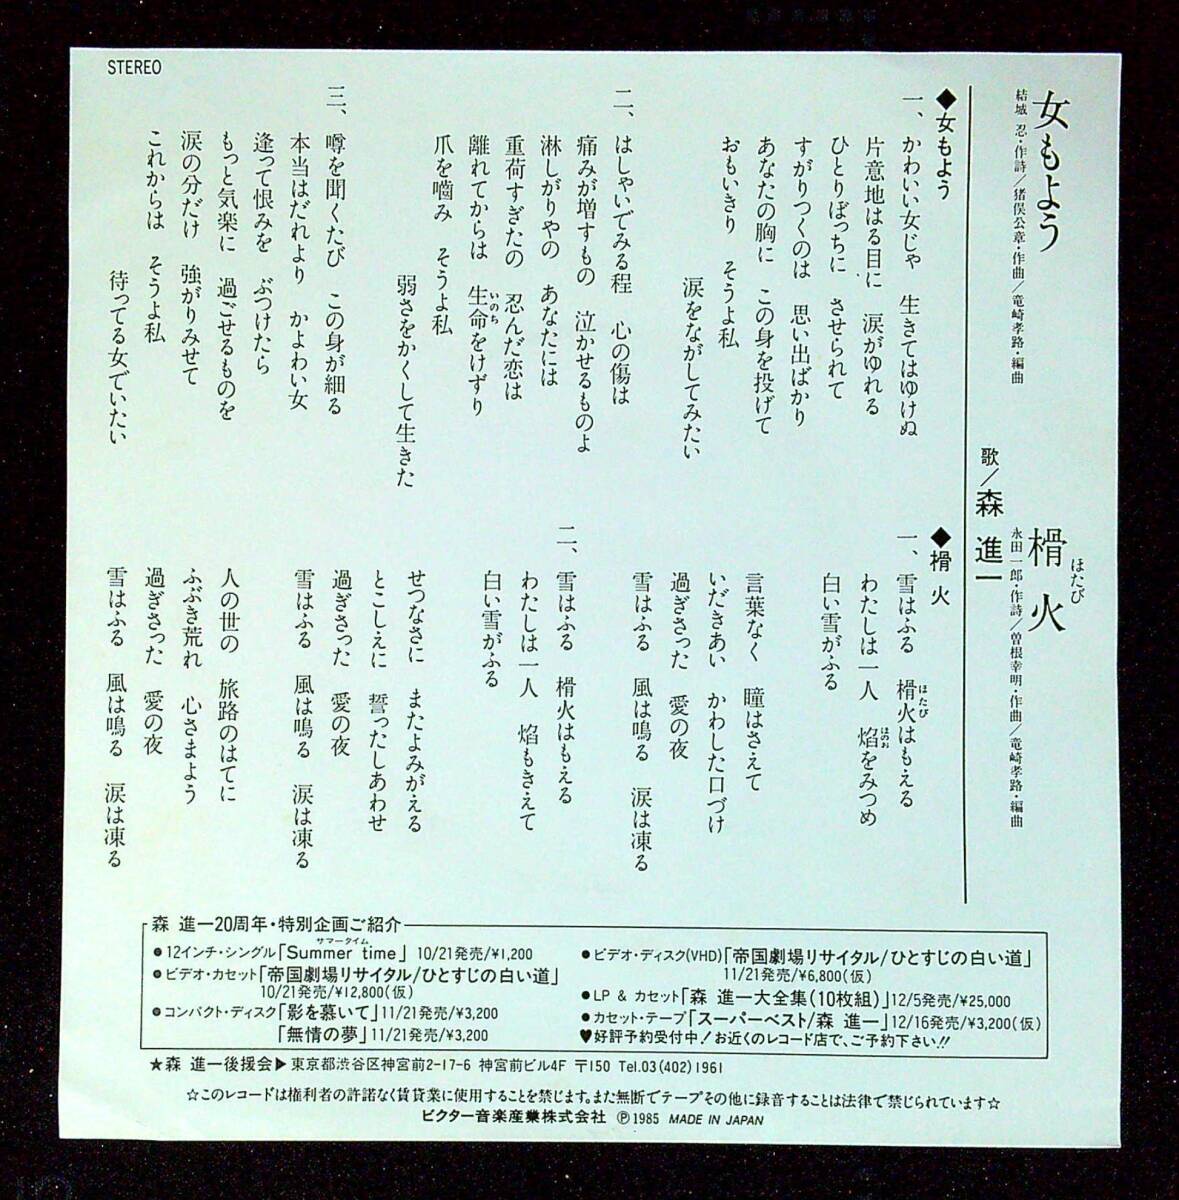 STEREO
女もよう
結城 忍・作詩／猪俣公章・作曲／竜崎孝路・編曲
榾火
ほたび
永田一郎・作詩／曽根幸明・作曲／竜崎孝路・編曲
歌／森 進一
◆女もよう
一、かわいい女じゃ 生きてはゆけぬ
片意地はる目に 涙がゆれる
ひとりぼっちに させられて
すがりつくのは 思い出ばかり
あなたの胸に この身を投げて
おもいきり そうよ私
涙をながしてみたい
二、はしゃいでみる程 心の傷は
痛みが増すもの 泣かせるものよ
淋しがりやの あなたには
重荷すぎたの 忍んだ恋は
離れてからは 生命をけずり
いのち
爪を噛み そうよ私
弱さをかくして生きた
三、噂を聞くたび この身が細る
本当はだれより かよわい女
逢って恨みを ぶつけたら
もっと気楽に 過ごせるものを
涙の分だけ 強がりみせて
これからは そうよ私
待ってる女でいたい
◆榾火
一、雪はふる 榾火はもえる
ほたび
わたしは一人 焔をみつめ
ほのお
白い雪がふる
言葉なく 瞳はさえて
いだきあい かわした口づけ
過ぎさった 愛の夜
雪はふる 風は鳴る 涙は凍る
二、雪はふる 榾火はもえる
わたしは一人 焔もきえて
白い雪がふる
せつなさに またよみがえる
とこしえに 誓ったしあわせ
過ぎさった 愛の夜
雪はふる 風は鳴る 涙は凍る
人の世の 旅路のはてに
ふぶき荒れ 心さまよう
過ぎさった 愛の夜
雪はふる 風は鳴る 涙は凍る
森 進一20周年・特別企画ご紹介
サマータイム
●12インチ・シングル「Summer time」10/21発売/¥1,200
●ビデオ・カセット「帝国劇場リサイタル/ひとすじの白い道」
10/21発売/¥12,800(仮)
●コンパクト・ディスク「影を慕いて」11/21発売/¥3,200
「無情の夢」11/21発売/¥3,200
●ビデオ・ディスク(VHD)「帝国劇場リサイタル/ひとすじの白い道」
11/21発売/¥6,800(仮)
●LP & カセット「森 進一大全集(10枚組)」12/5発売/¥25,000
●カセット・テープ「スーパーベスト/森 進一」12/16発売/¥3,200(仮)
♥好評予約受付中！お近くのレコード店で、ご予約下さい!!
★森 進一後援会▶東京都渋谷区神宮前2-17-6 神宮前ビル4F 〒150 Tel.03(402)1961
☆このレコードは権利者の許諾なく賃貸業に使用することを禁じます。また無断でテープその他に録音することは法律で禁じられています☆
ビクター音楽産業株式会社 ℗1985 MADE IN JAPAN